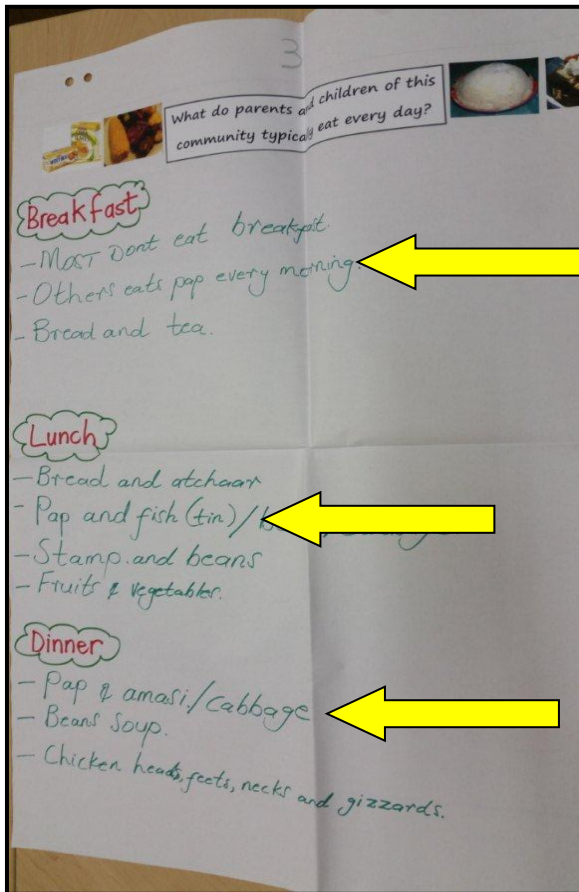 3
What do parents and children of this
community typically eat every day?
Breakfast
- MOST Dont eat breakfast.
- Others eats pap every morning.
- Bread and tea.
Lunch
- Bread and atchaar
- Pap and fish (tin)/
- Stamp and beans
- Fruits & vegetables.
Dinner
- Pap & amasi/cabbage
- Beans Soup.
- Chicken heads, feets, necks and gizzards.